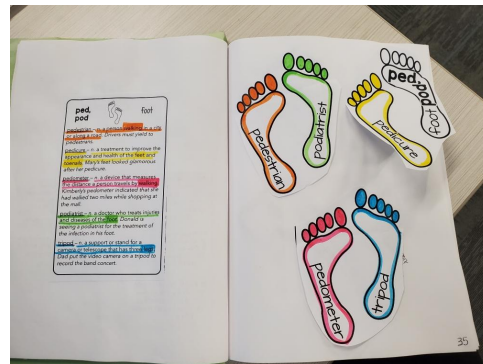 ped,
pod
foot
pedestrian – n. a person walking in a city
or along a road. Drivers must yield to
pedestrians.
pedicure – n. a treatment to improve the
appearance and health of the feet and
toenails. Mary's feet looked glamorous
after her pedicure.
pedometer – n. a device that measures
the distance a person travels by walking.
Kimberly's pedometer indicated that she
had walked two miles while shopping at
the mall.
podiatrist – n. a doctor who treats injuries
and diseases of the foot. Donald is
seeing a podiatrist for the treatment of
the infection in his foot.
tripod – n. a support or stand for a
camera or telescope that has three legs.
Dad put the video camera on a tripod to
record the band concert.
pedestrian
podiatrist
pedicure
ped, pod
foot
pedometer
tripod
35